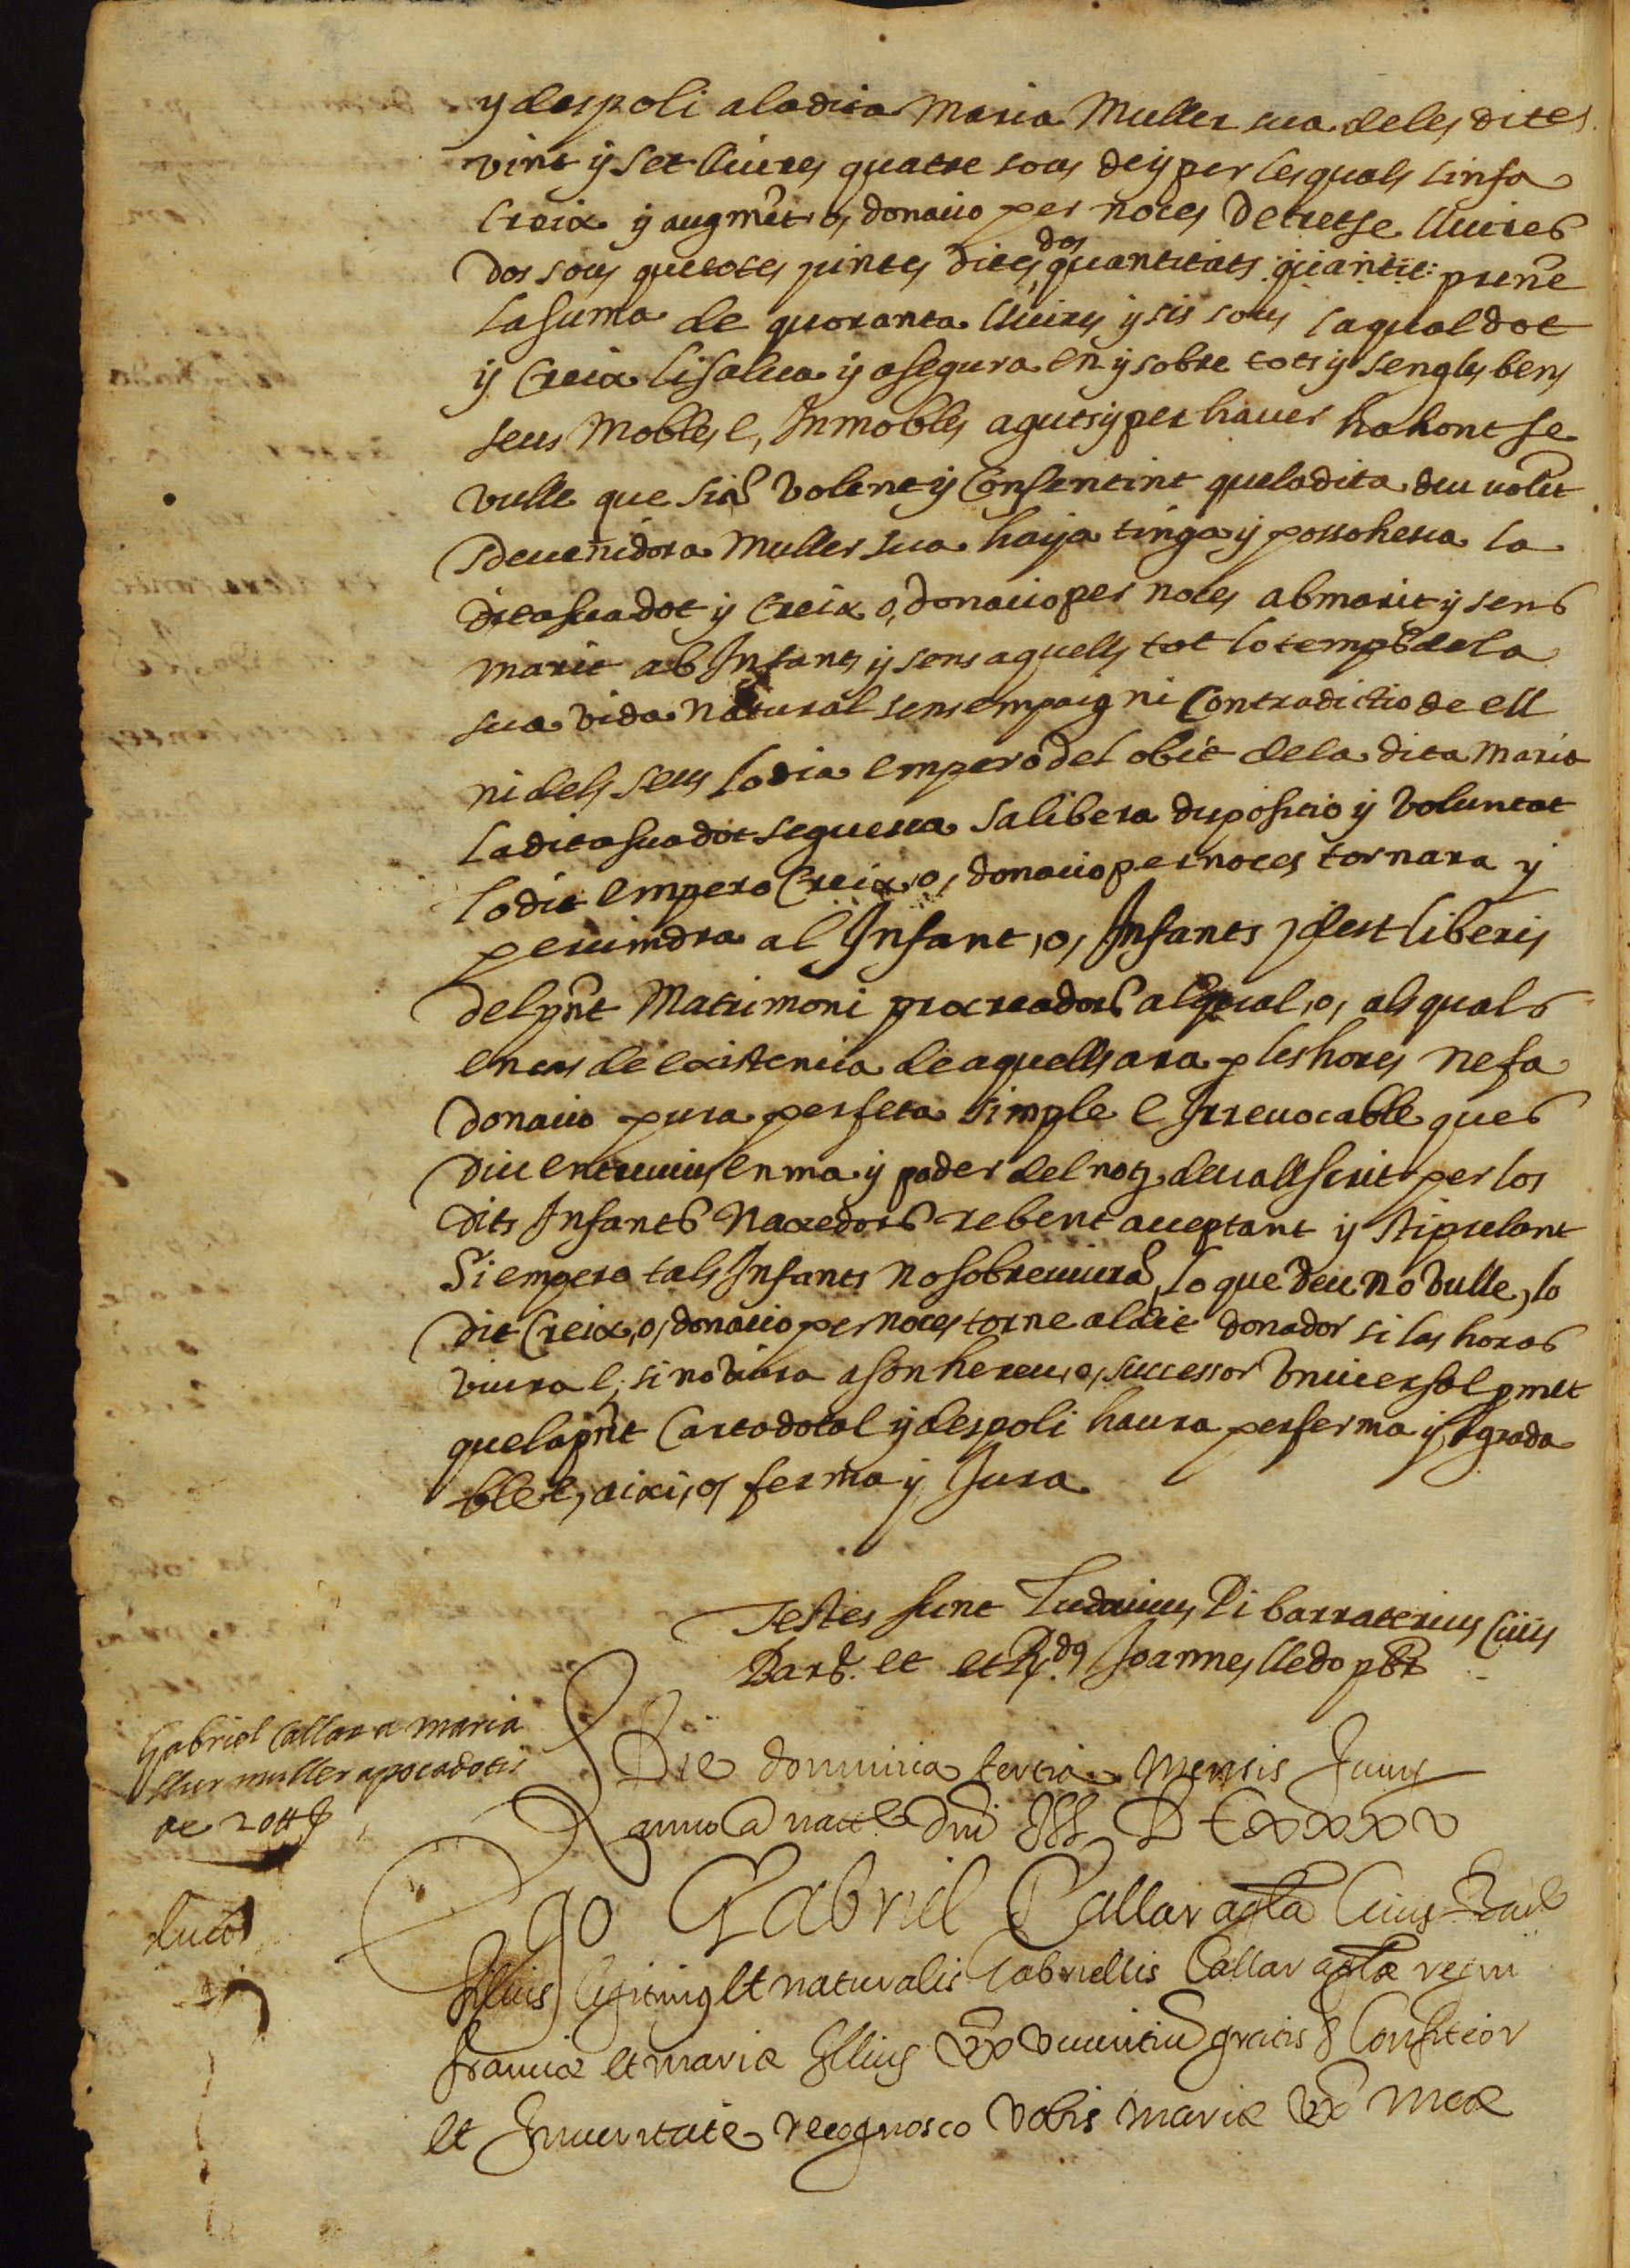 y despoli a la dita Maria Muller sua de les dites
vint y set lliures quatre sous de y per les quals li n fa
Creix y augmēt o, donacio per noces de tretse lliures
dos sous que totes juntes dites dos quantitats quantit: prenē
la suma de quoranta lliures y sis sous la qual dot
y Creix li salva y asegura en y sobre tots y sengles bens
seus Mobles e, Inmobles aguts y per haver ha hont se
vulle que siā volent y Consentint que la dita deu volēt
sdevenidora Muller sua haija tinga y possohesca la
dita sua dot y Creix o, donacio per noces ab marit y sens
marit ab Infants y sens aquells tot lo temps de la
sua vida natural sens empaig ni Contradictio de ell
ni dels seus lo dia empero del obit de la dita Maria
la dita sua dot seguesca sa libera disposicio y voluntat
lo dit empero Creix, o, donacio per noces tornara y
pervindra al Infant, o, Infants idest liberis
del pn̄t Matrimoni procreadors al qual, o, als quals
en cas de existencia de aquells ara p les hores ne fa
donacio pura perfeta simple e Irrevocable ques
diu entrevius en ma y poder del not. devall scrit per los
dits Infants Naxedors rebent acceptant y stipulant
Si empero tals Infants no sobreviurā, lo que deu no vulle, lo
dit Creix, o, donacio per noces torne al dit donador si las horas
viura e, si no viura a son hereu, o, successor Universal pmet
que la pn̄t Carta dotal y despoli haura per ferma y agrada
ble e, aixi, o, ferma y Jura
Testes sunt Ludovicus Pi barraterius Civis
Barð. et et Rdus Joannes lledo pbr
Gabriel Callar a Maria
sa muller apoca dotis
de 20 ℔
Die dominica tertia Mensis Juny
anno a nat.e Dn̄i M DCxxxv
Ego Gabriel Callar Civis Barð
filius legitimus et naturalis Gabrielis Callar regni
franciæ et mariæ illius ux viventiū gratis & Confiteor
et In veritate recognosco Vobis Mariæ ux Meæ